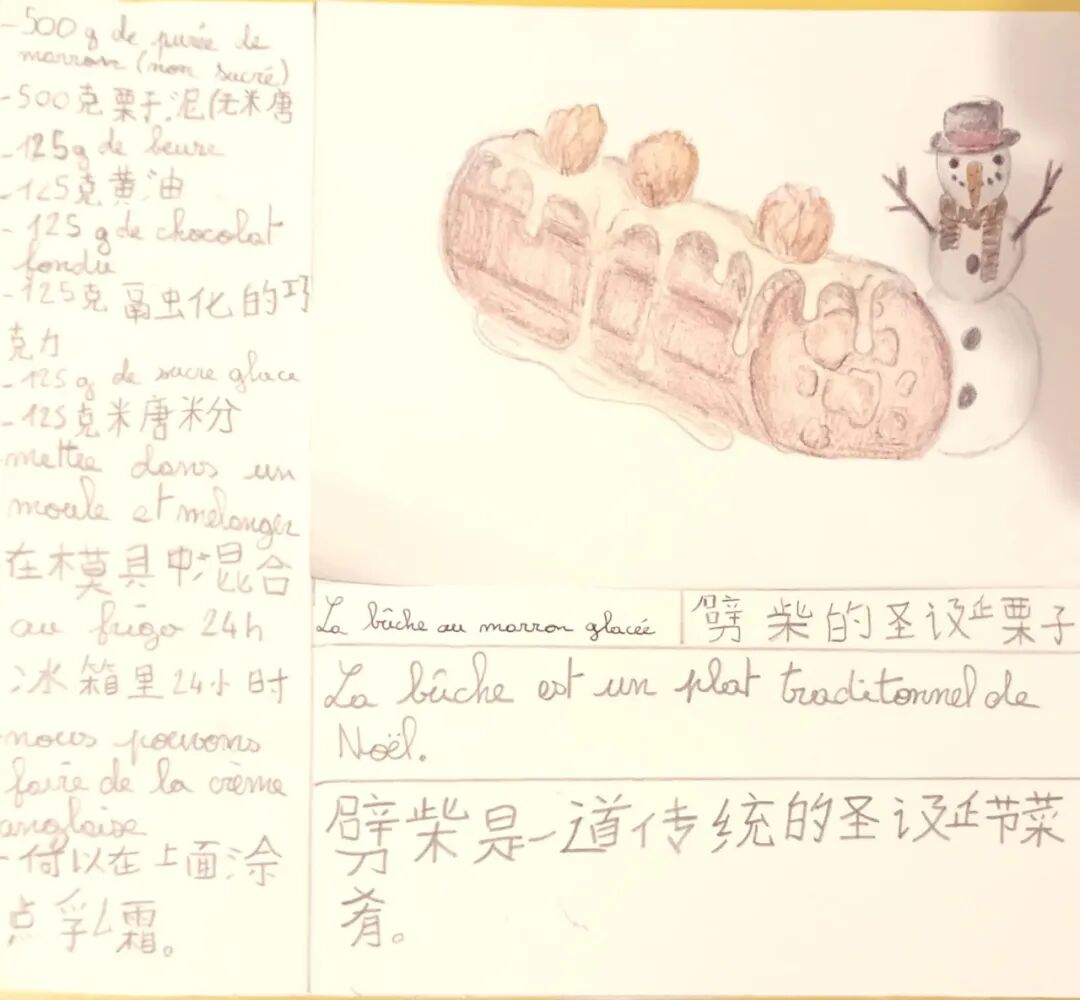 -500 g de purée de
marron (non sucré)
-500克栗子泥(无糖
-125g de beure
-125克黄油
-125 g de chocolat
fondu
-125克融化的巧
克力
-125g de sucre glace
-125克糖粉
mettre dans un
moule et mélanger
在模具中混合
au frigo 24h
冰箱里24小时
nous pouvons
faire de la crème
anglaise
-何以在上面涂
点乳霜。
La bûche au marron glacée
劈柴的圣诞栗子
La bûche est un plat traditonnel de
Noël.
劈柴是一道传统的圣诞节菜
肴。